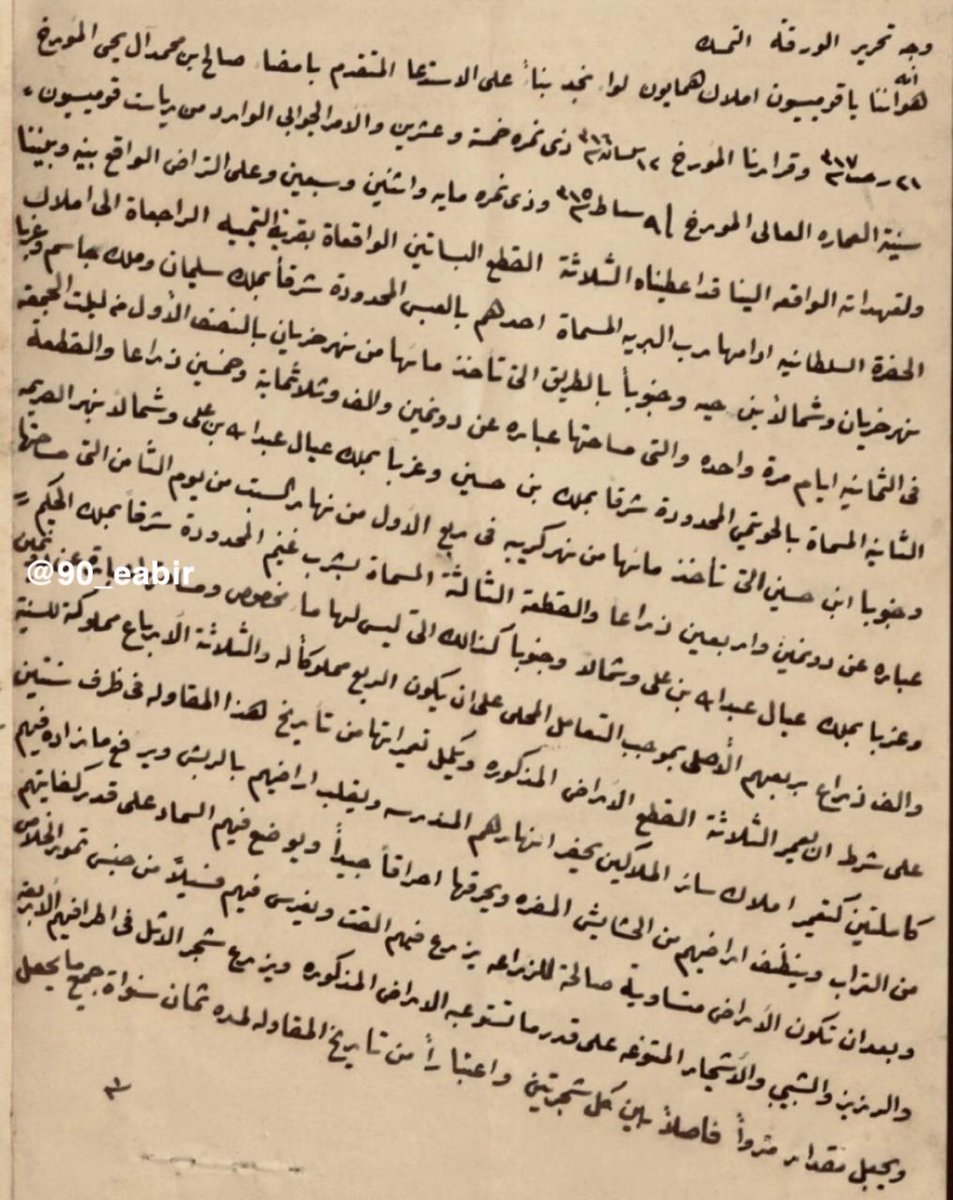 وجه تحرير الورقة التمسك
هو أننا يا قوميسيون املاك همايون لواء نجد بناءً على الاستدعا المتقدم بامضاء صالح بن محمد آل يحى المورخ
٢١ رجب ٣١٧ وقرارنا المورخ ١٢ نيسان ٣١٦ ذى نمره خمسة وعشرين والامر الجوابي الوارد من رياست قوميسيون
سنية العماره العالى المورخ ٩ شباط ٣١٥ وذى نمره مايه واثنين وسبعين وعلى التراض الواقع بينه وبيننا
ولتعهداته الواقعه الينا قد اعطيناه الثلاثة القطع البساتين الواقعاة بقرية التيميه الراجعاة الى املاك
الحضرة السلطانيه ادامها رب البريه المسماة احدهم بالعبس المحدودة شرقاً بملك سليمان وملك جاسم وغربا
نهر خزيان وشمالاً بن حيه وجنوباً بالطريق التى تأخذ مائها من نهر خزيان بالنصف الأول من ليلت الجمعه
فى الثمانيه ايام مرة واحده والتى مساحتها عباره عن دونمين والف وثلاثماية وخمسين ذراعا والقطعة
الثانيه المسماة بالحويتمي المحدودة شرقاً بملك بن حسين وغربا بملك عيال عبدالله بن على وشمالاً بنهر الصريمه
وجنوبا ابن حسين التى تأخذ مائها من نهر كريبه فى ربع الاول من نهار السبت من يوم الثامن التى مساحتها
عباره عن دونمين واربعين ذراعا والقطعة الثالثة المسماة بشرب غنيم المحدودة شرقاً بملك الحكيم
وغربا بملك عيال عبدالله بن على وشمالا وجنوباً كذالك التى ليس لها ماء مخصوص
والف ذراع بربعهم الأصلى بموجب التعامل المحلى على ان يكون الربع مملوكاً له والثلاثة الأرباع مملوكة للسنية
على شرط ان يعمر الثلاثة القطع الاراض المذكوره ويكمل تعميراتها من تأريخ هذا المقاوله فى ظرف سنتين
كاملتين كتعمير املاك سائر الملاكين بحفر انهارهم المندرسه ويقلب اراضيهم بالربش ويرفع ما زاد فيهم
من التراب وينظف اراضيهم من الحشايش المضره ويحرقها احراقاً جيداً ويوضع فيهم السماد على قدر كفايتهم
وبعد ان تكون الأراض متساوية صالحة للزراعه يزرع فيهم القت ويغرس فيهم فسيلاً من جنس تمور الخلاص
والرزيز والشيبي والأشجار المتنوعه على قدر ما تستوعبه الاراض المذكوره ويزرع شجر الاثل فى اطرافهم الأربعه
ويجعل مقدار متراً فاصلاً بين كل شجرتين واعتباراً من تأريخ المقاوله لمده ثمان سنواة جميع ما يحصل
@90_eabir